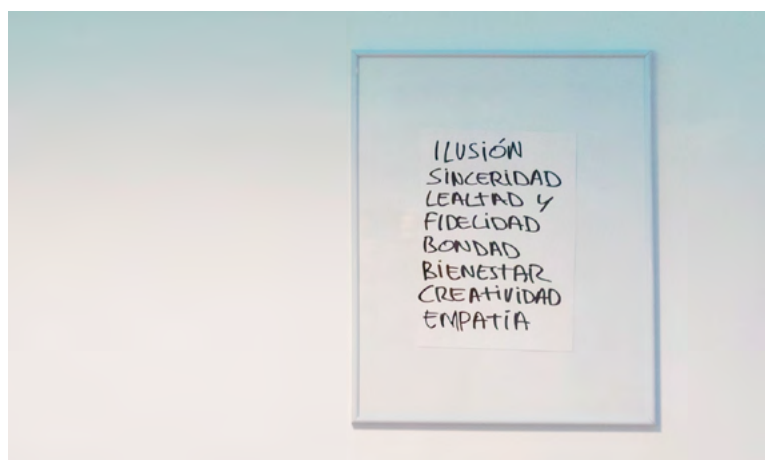 ILUSIÓN
SINCERIDAD
LEALTAD Y
FIDELIDAD
BONDAD
BIENESTAR
CREATIVIDAD
EMPATÍA